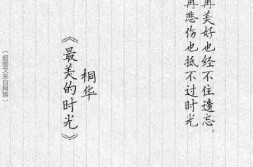 再美好也经不住遗忘,
再悲伤也抵不过时光
桐华
《最美的时光》